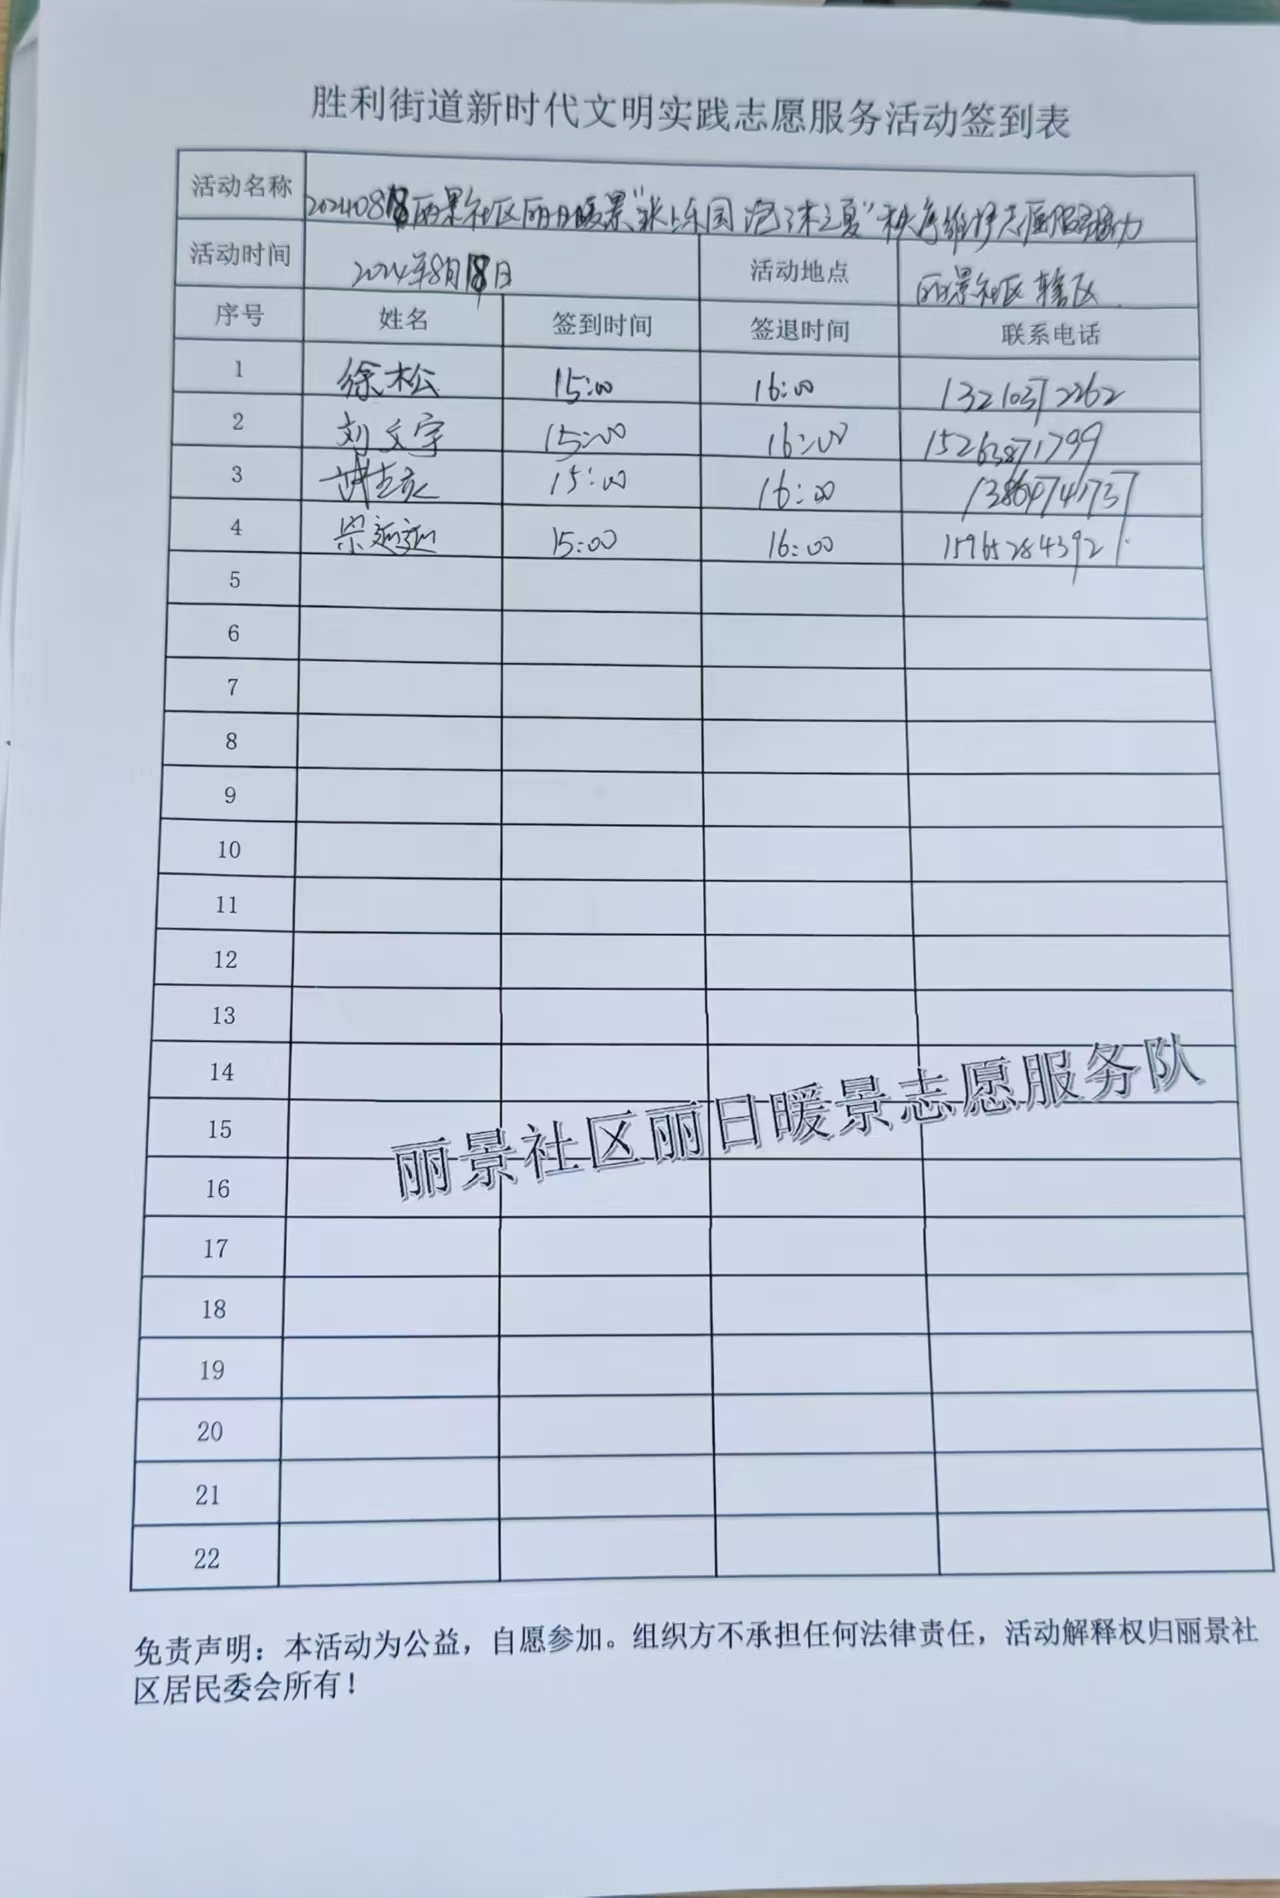 胜利街道新时代文明实践志愿服务活动签到表
活动名称 20240818丽景社区丽日暖景"水上乐园 泡沫之夏"秩序维护志愿服务活动
活动时间 2024年8月18日 活动地点 丽景社区辖区
序号 姓名 签到时间 签退时间 联系电话
1 徐松 15:00 16:00 13210372262
2 刘文宇 15:00 16:00 15263871799
3 15:00 16:00
4 15:00 16:00 15965284392
5
6
7
8
9
10
11
12
13
14
15
16
17
18
19
20
21
22
丽景社区丽日暖景志愿服务队
免责声明：本活动为公益，自愿参加。组织方不承担任何法律责任，活动解释权归丽景社
区居民委会所有！